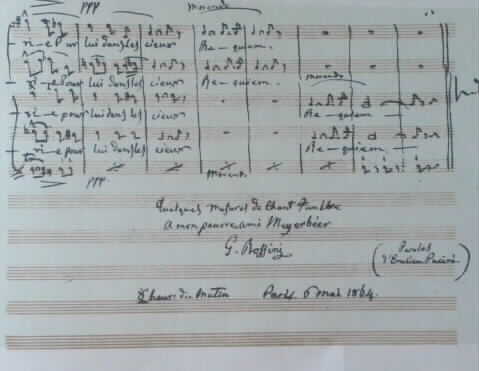 ppp morendo
- ri-e Pour lui dans les cieux Re-quiem.
- ri-e Pour lui dans les cieux Re-quiem. morendo
- ri-e pour lui dans les cieux Re-quiem
- ri-e pour lui dans les cieux Re-quiem
ppp morendo
Quelques mesures de Chant Funèbre
A mon pauvre ami Meyerbeer
G. Rossini
(Paroles
d'Emilien Pacini)
8 heures du Matin Paris. 6 mai 1864.